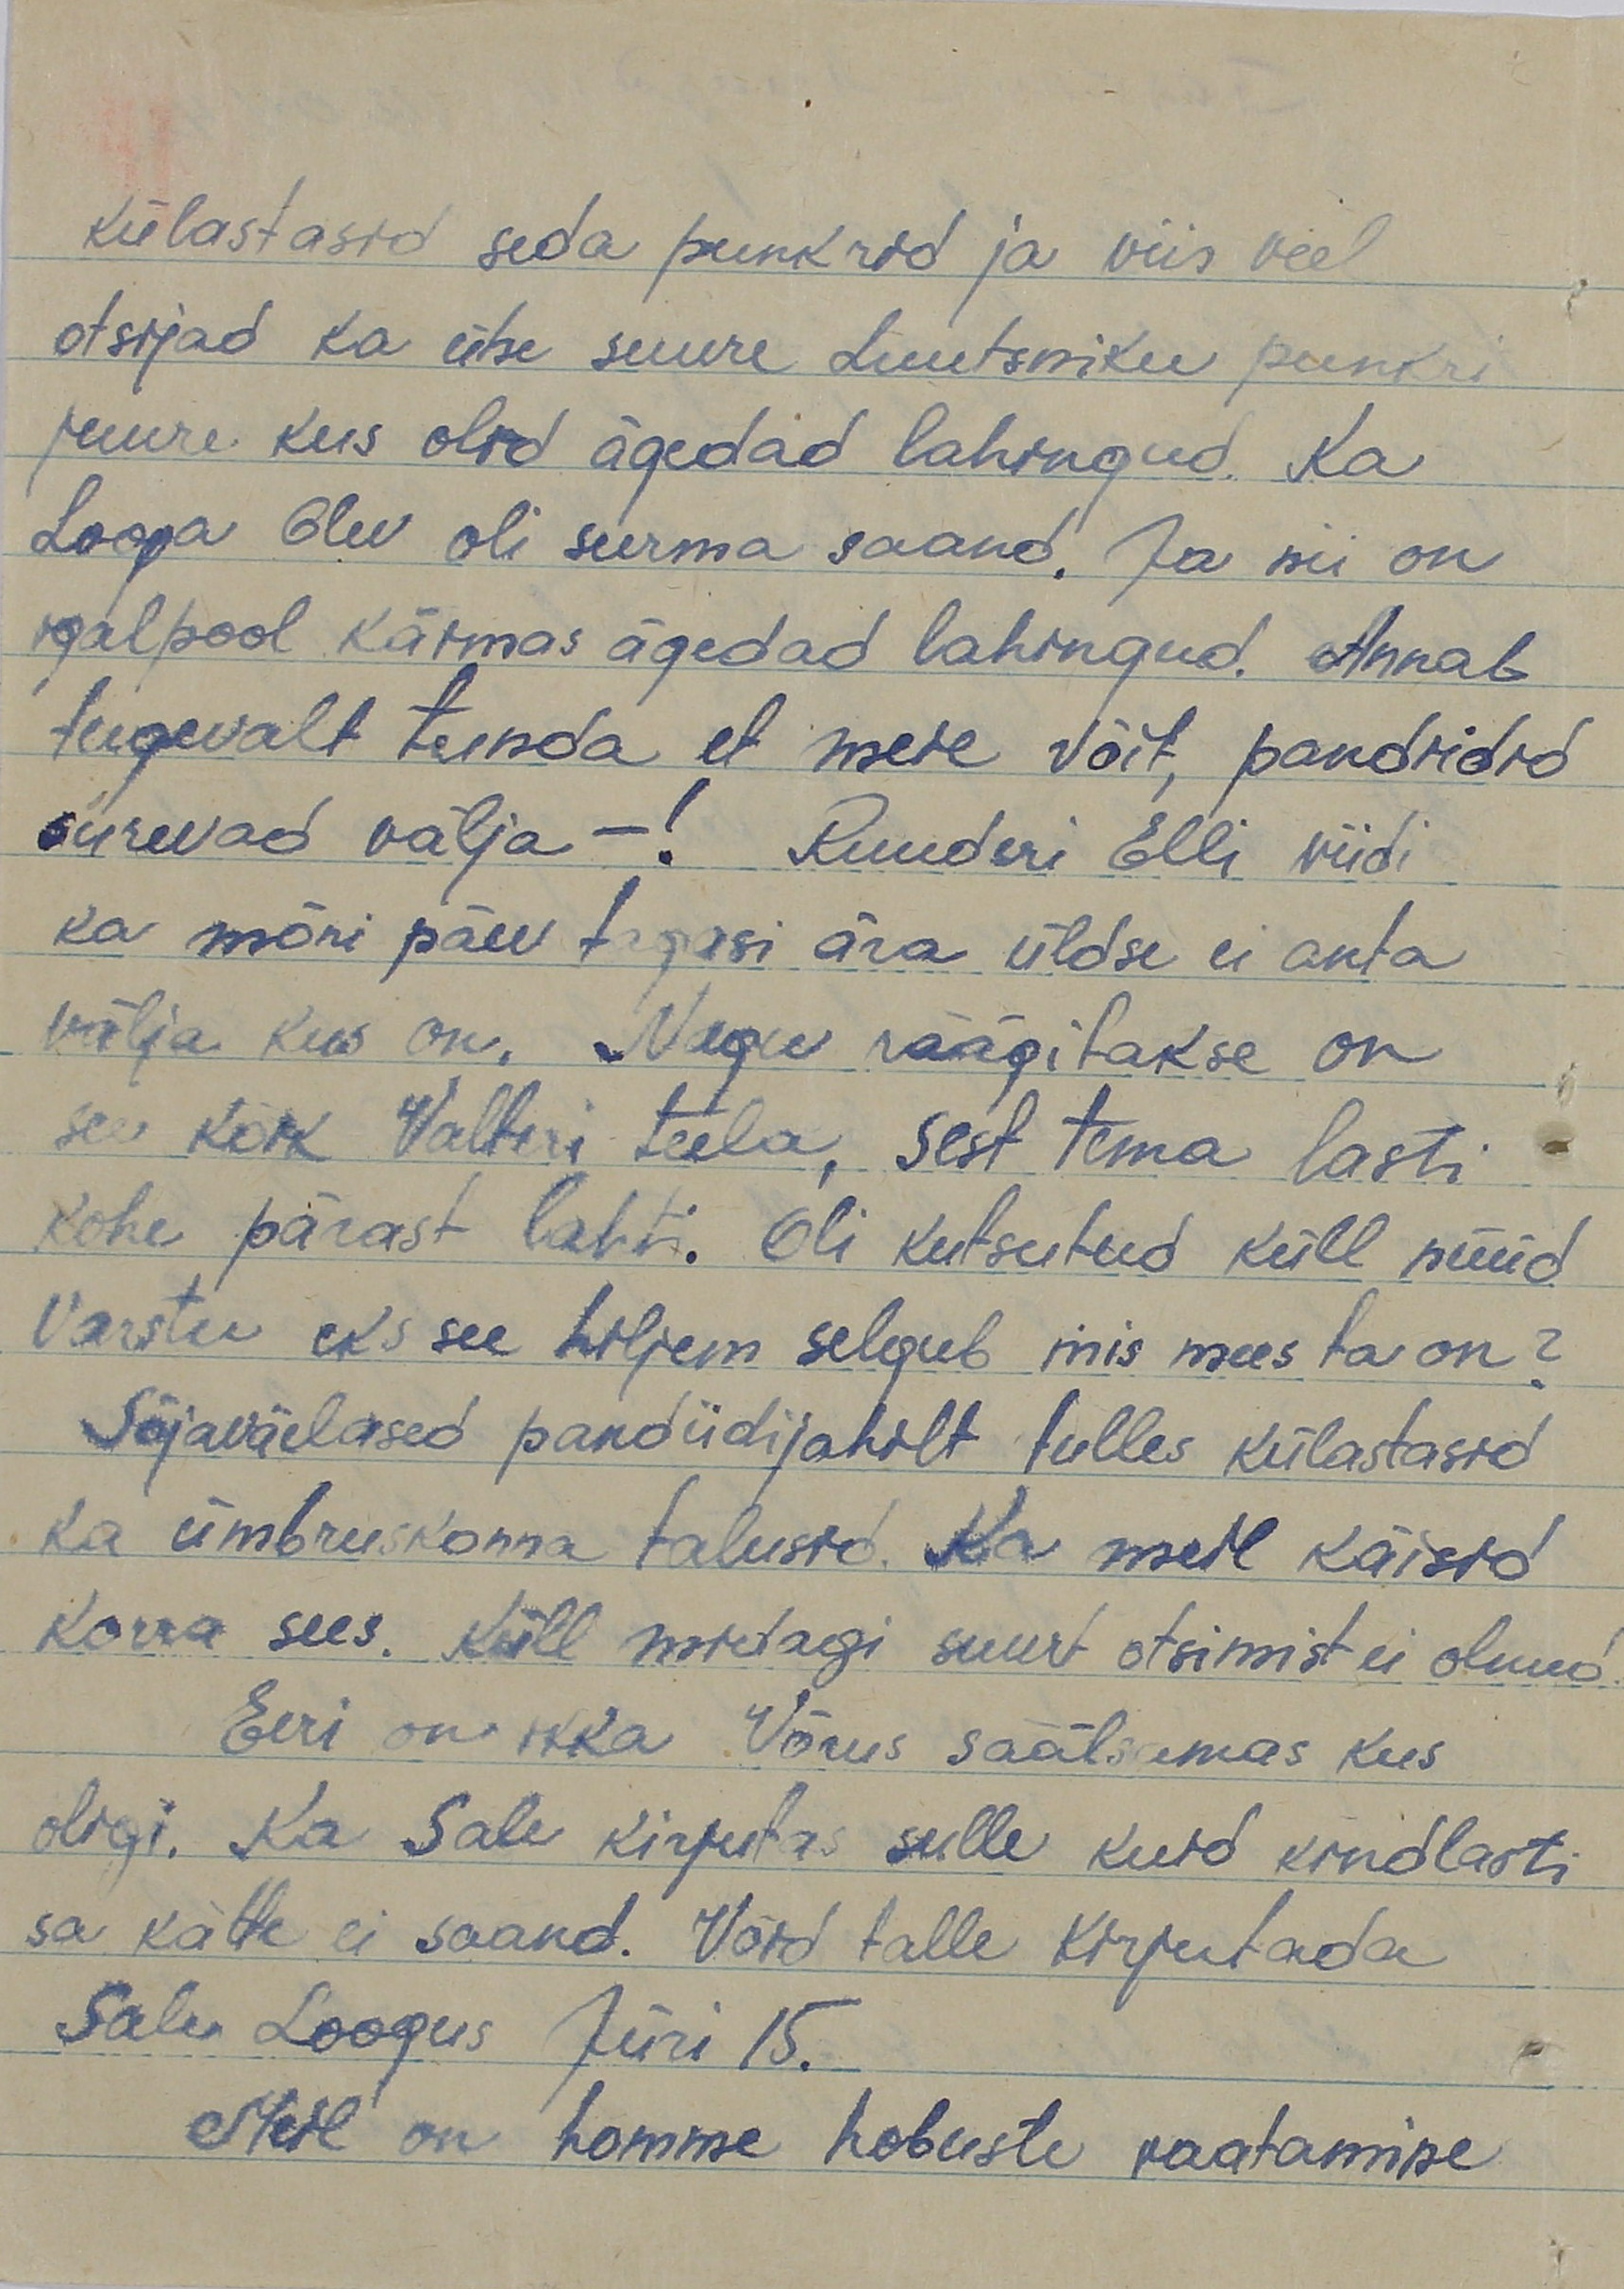 külastasid seda punkrid ja viis veel
otsijad ka ühe suure Luutsniku punkri
juure kus olid ägedad lahingud. Ka
Looga Olev oli surma saand. Ja nii on
igalpool käimas ägedad lahingud. Annab
tugevalt tunda et meie võit, pandiidid
surevad välja –! Ruuderi Elli viidi
ka mõni päev tagasi ära üldse ei anta
välja kus on. Nagu räägitakse on
see kõik Valteri teela, sest tema lasti
kohe pärast lahti. Oli kutsutud küll nüüd
Varstu eks see hiljem selgub mis mees ta on?
Sõjaväelased pandiidijahilt tulles külastasid
ka ümbruskonna talusid. Ka meil käisid
korra sees. Küll midagi suurt otsimist ei olnud.
Eeri on ikka Võrus säälsamas kus
oligi. Ka Sale kirjutas sulle kuid kindlasti
sa kätte ei saand. Võid talle kirjutada
Sale Loogus Jüri 15.
Meil on homme hobuste vaatamine